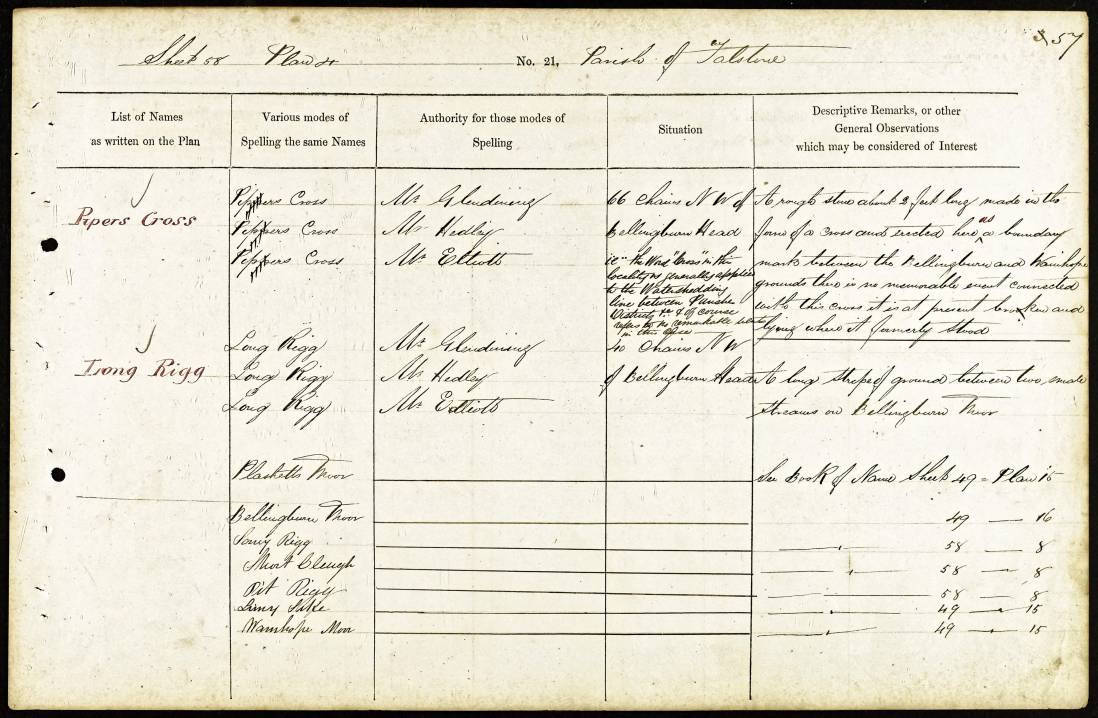 57
Sheet 58 Plan 4 No. 21, Parish of Falstone
List of Names
as written on the Plan
Various modes of
Spelling the same Names
Authority for those modes of
Spelling
Situation
Descriptive Remarks, or other
General Observations
which may be considered of Interest
Pipers Cross
Pippers Cross Mr Glendining 66 Chains N W of A rough stone about 2 feet long made in the
Pippers Cross Mr Hedley Bellingburn Head form of a cross and erected here as a boundary
Pippers Cross Mr Elliott ie "the Word "Cross" in this mark between the Bellingburn and Wainhope
locality is generally applied grounds there is no memorable event connected
to the Watershedding with this cross it is at present broken and
line between Parishes lying where it formerly stood
Districts &c & of course
refers to no remarkable
in this case
Long Rigg
Long Rigg Mr Glendining 40 Chains N W
Long Rigg Mr Hedley of Bellingburn Head A long stripe of ground between two small
Long Rigg Mr Elliott streams on Bellingburn Moor
Plashetts Moor See Book of Name Sheet 49 = Plan 15
Bellingburn Moor 49 — 16
Rigg 58 — 8
Short Cleugh 58 — 8
Pit Rigg 58 — 8
Limy Sike 49 — 15
Wainhope Moor 49 — 15